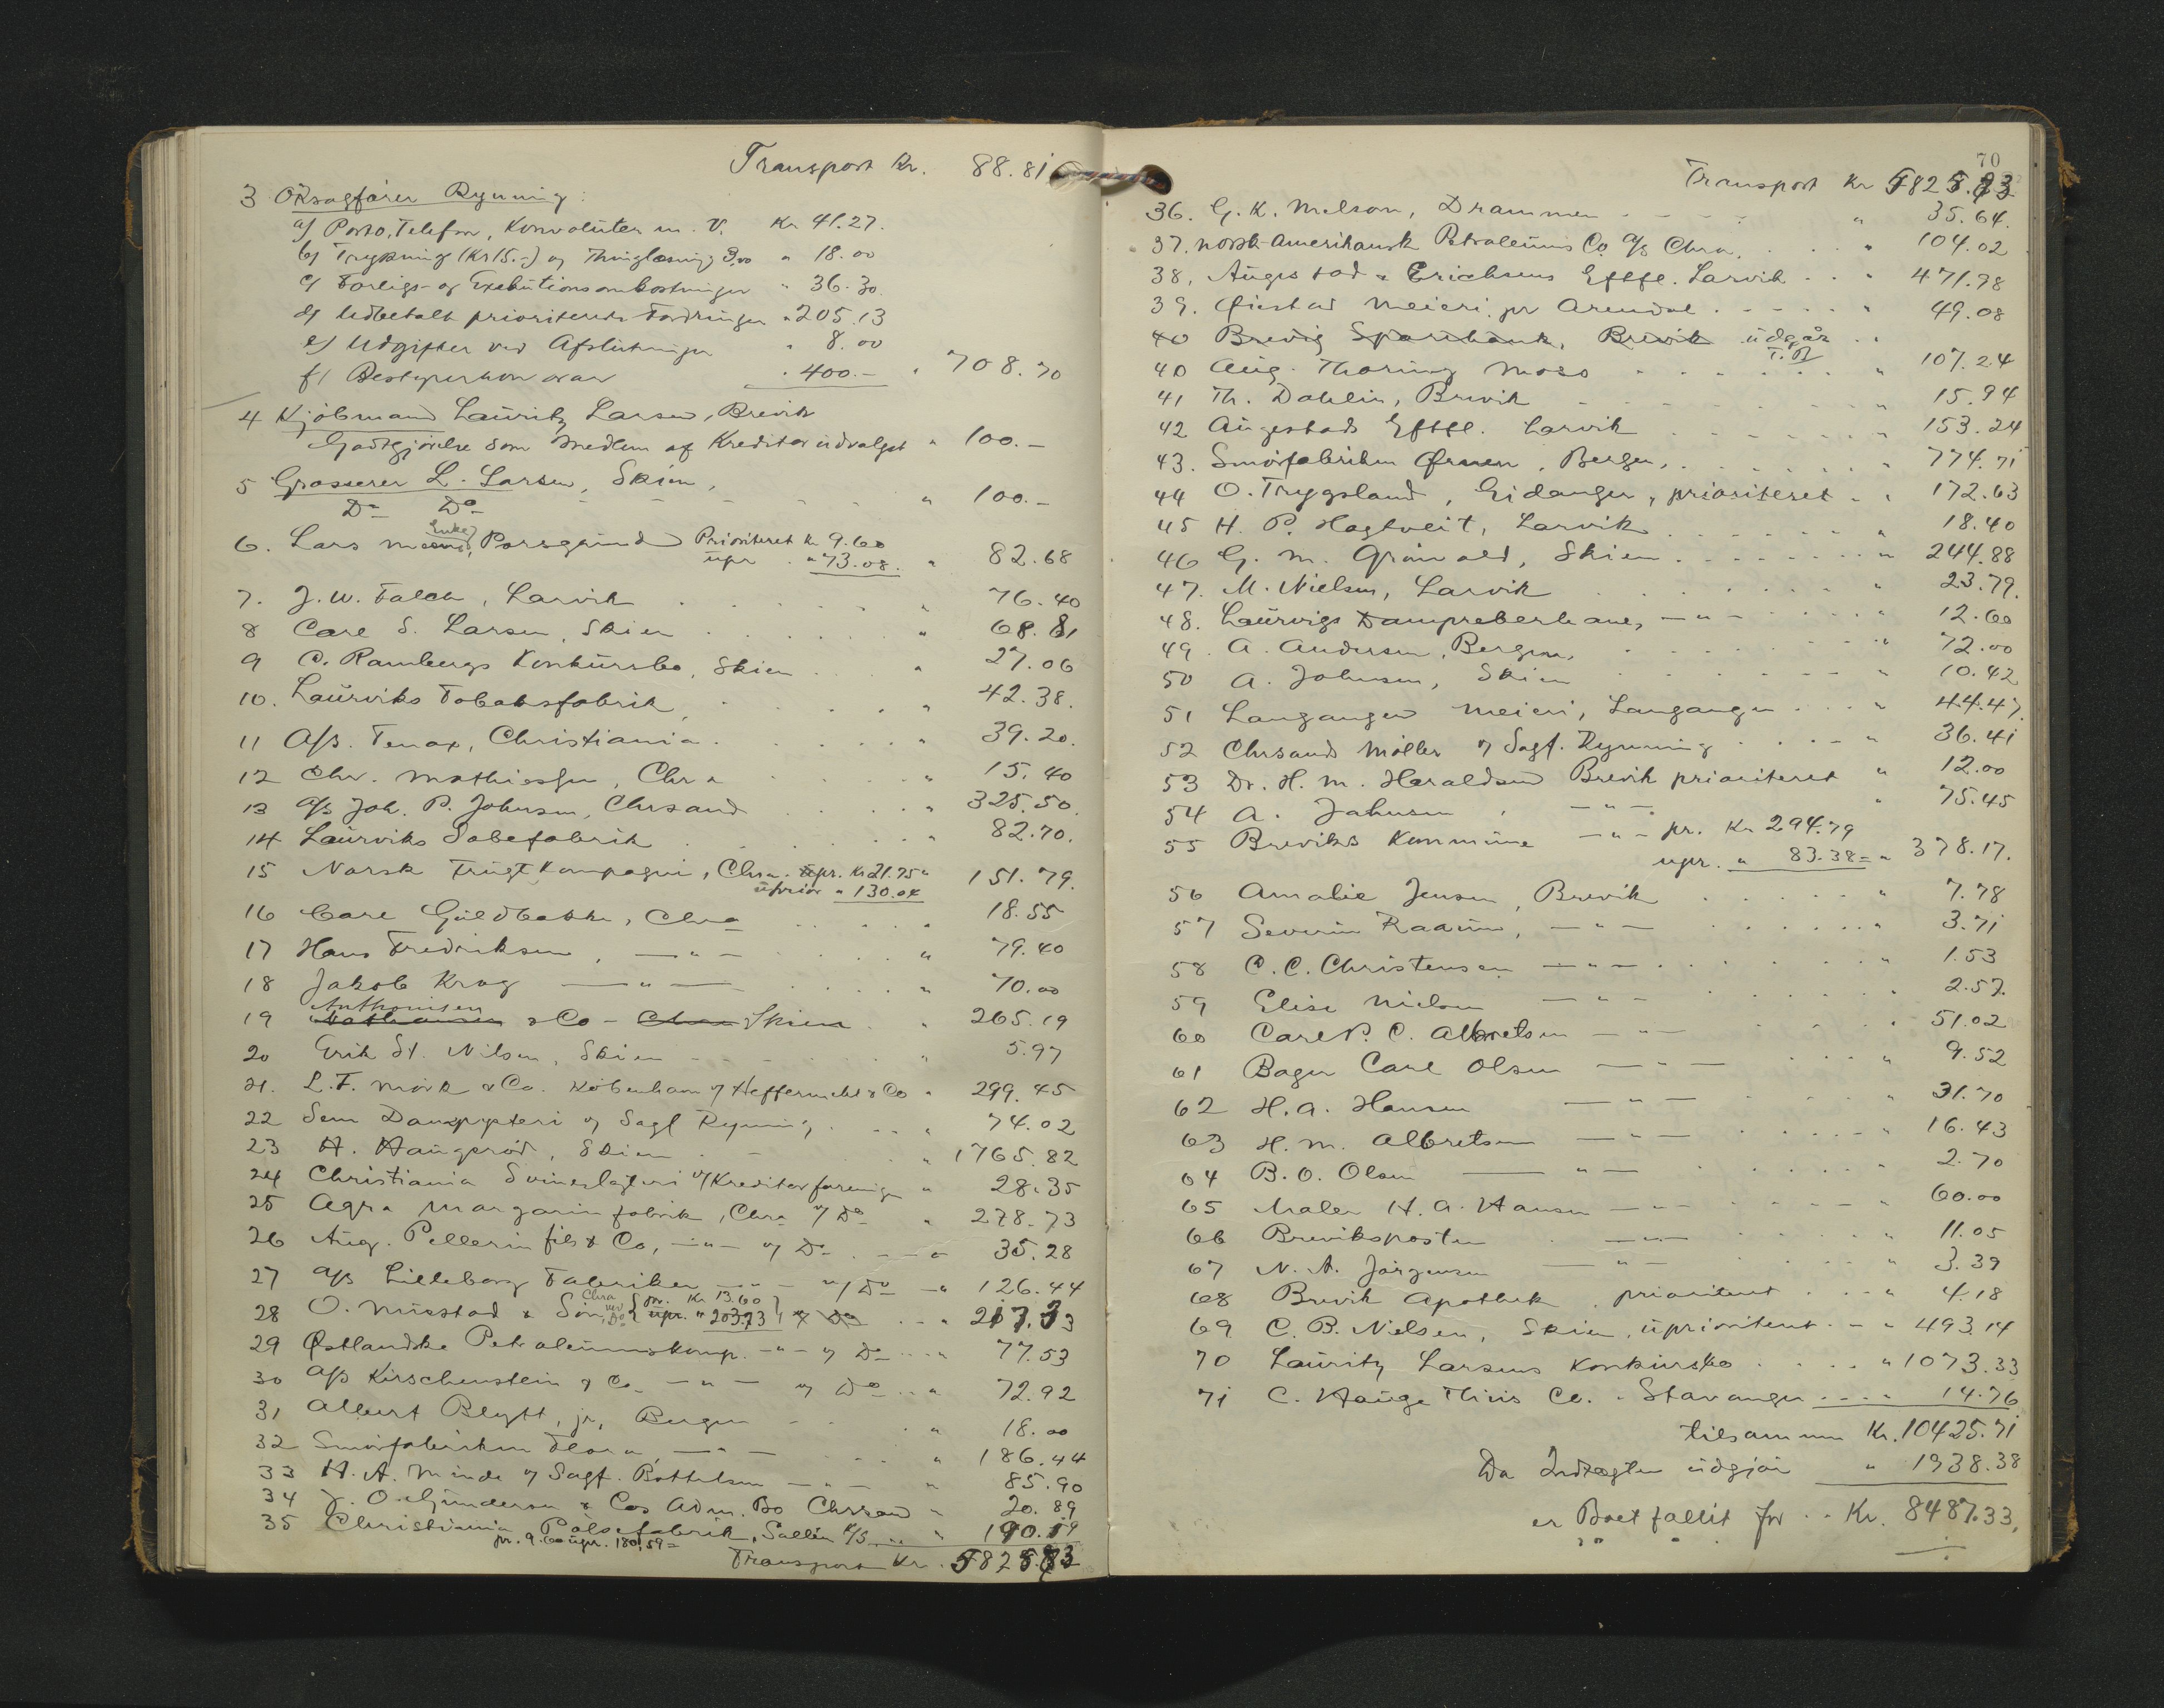 Transport Kr. 88.81
3 ORsagfører Rynning:
a) Porto, Telefon, Konvoluter m. V. Kr 41.27.
b) Trykning (Kr 15.-) og Thinglæsning 3,00 " 18.00
c) Forligs- og Exekutionsomkostninger " 36.30.
d) Udbetalt prioriterede Fordringer " 205.13
e) Udgifter ved Afslutningen " 8.00
f) Bestyrerhonorar " 400.- " 708.70
4 Kjøbmand Lauritz Larsen, Brevik
Godtgjørelse som Medlem af Kreditorudvalget " 100.-
5 Grosserer L. Larsen, Skien,
Do Do " 100.-
6. Lars Moens Enke, Porsgrund Prioriteret Kr 9.60
upr. " 73.08. " 82.68
7. J. W. Falch, Larvik " 76.40
8 Carl S. Larsen, Skien " 68.81
9 C. Rambergs Konkursbo, Skien " 27.06
10. Laurviks Tobaksfabrik " 42.38.
11 A/S. Tenax, Christiania " 39.20.
12 Chr. Mathiesen, Chra " 15.40
13 A/S Joh. P. Johnsen, Chrsand " 325.50
14 Laurviks Sæbefabrik " 82.70.
15 Norsk Frugtkompagni, Chra. pr. Kr 21.75 "
uprior " 130.04 151.79.
16 Carl Guldbakke, Chra 18.55
17 Hans Fredriksen, — " — " 79.40
18 Jakob Krog — " — " 70.00
19 Anthonisen & Co - Skien " 265.19
20 Erik St. Nilsen, Skien " 5.97
21. L. F. Mörk & Co. København v/ Heffermehl & Co " 299.45
22 Sem Dampysteri v/ Sagf Rynning " 74.02
23 H. Haugerød, Skien " 1765.82
24 Christiania Svineslagteri v/ Kreditorforening " 28.35
25 Agra Margarinfabrik, Chra v/ Do " 278.73
26 Aug. Pellerin fils & Co, — " — v/ Do " 35.28
27 A/S Lilleborg Fabriker — " — v/ Do " 126.44
28 O. Mustad & Søn, Chra ved Do { pr. Kr 13.60
upr. " 203.73 } " 217.33
29 Østlandske Petroleumskomp. — " — v/ Do " 77.53
30 A/S Kirschenstein & Co — " — v/ Do " 72.92
31 Albert Blytt, jr, Bergen " 18.00
32 Smørfabriken Flora, — " — " 186.44
33 H. A. Minde v/ Sagf. Bottelsen — " — " 85.90
34 J. O. Gundersen & Cos Adm. Bo Chrsand " 20.89
35 Christiania Pølsefabrik, Sallin A/S " 190.19
pr. 9.60 upr. 180.59=
Transport Kr. 5825.83
70
Transport Kr 5825.83
36. G. K. Melsom, Drammen " 35.64.
37. Norsk-Amerikansk Petroleums Co. A/S Chra. " 104.02
38, Augestad & Erichsens Eftfl. Larvik " 471.98
39. Øiestad Meieri pr Arendal " 49.08
40 Brevig Sparebank, Brevik udgår
T. R
40 Aug. Thorning Moss " 107.24
41 Th. Dahlin, Brevik " 15.94
42 Augestads Eftfl. Larvik " 153.24
43. Smørfabriken Ørnen, Bergen, " 774.71
44 O. Trygsland, Eidanger, prioriteret " 172.63
45 H. P. Hagtveit, Larvik " 18.40
46 G. M. Grönvold, Skien " 244.88
47. M. Nielsen, Larvik " 23.79.
48. Laurvigs Dampræberbane, — " — " 12.60
49. A. Andersen, Bergen, " 72.00
50 A. Johnsen, Skien " 10.42
51 Langangen Meieri, Langangen " 44.47.
52 Chrsands Møller v/ Sagf. Rynning " 36.41
53 Dr. H. M. Haraldsen Brevik prioriteret " 12.00
54 A. Johnsen, — " — " 75.45
55 Breviks Kommune — " — pr. Kr 294.79
upr. " 83.38= " 378.17.
56 Amalie Jensen, Brevik " 7.78
57 Severin Raaum, — " — " 3.71
58 C. C. Christensen — " — " 1.53
59 Elise Nielsen — " — " 2.57.
60 Carl P. C. Albretsen — " — " 51.02
61 Bager Carl Olsen — " — " 9.52
62 H. A. Hansen — " — " 31.70
63 H. M. Albretsen — " — " 16.43
64 B. O. Olsen — " — " 2.70
65 Maler H. A. Hansen — " — " 60.00
66 Breviksposten — " — " 11.05
67 N. A. Jørgensen — " — " 3.39
68 Brevik Apothek, prioriteret " 4.18
69 C. B. Nielsen, Skien, uprioriteret " 493.14
70 Lauritz Larsens Konkursbo " 1073.33
71 C. Hauge Thiis Co. Stavanger " 14.76
tilsammen Kr. 10425.71
Da Indtægten udgjør " 1938.38
er Boet fallit for Kr. 8487.33.